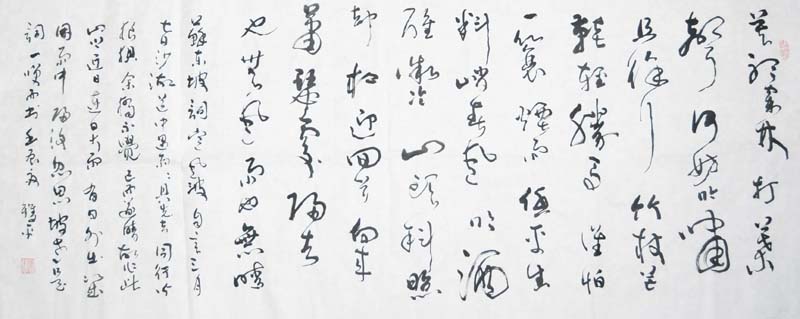 莫聽穿林打葉
聲何妨吟嘯
且徐行竹杖芒
鞋輕勝馬誰怕
一蓑煙雨任平生
料峭春風吹酒
醒微冷山頭斜照
却相迎回首向來
蕭瑟處歸去
也無風雨也無晴
蘇東坡詞定風波自言三月
七日沙湖道中遇雨雨具先去同行皆
狼狽余獨不覺已而遂晴故作此
連日大雨有日外出
雨中歸後忽思坡老
詞一嘆而書壬辰夏